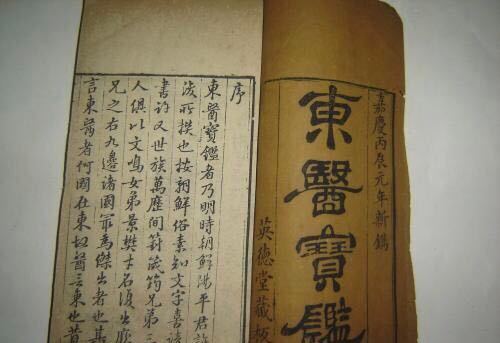 嘉慶丙辰元年新鐫
東醫寶鑑
英德堂藏板
序
東醫寶鑑者乃明時朝鮮陽平君許
浚所撰也按朝鮮俗素知文字喜讀
書許又世族萬歷間葑筬筠兄弟三
人俱以文鳴女弟景樊才名復出
兄之右九邊諸國最為傑出者也其
言東醫者何國在東故醫言東也昔